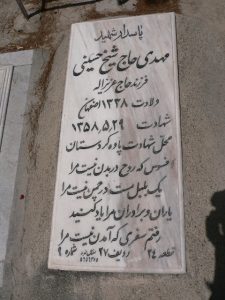 پاسدار شهید
مهدی حاج شیخ حسینی
فرزند حاج عزیزاله
ولادت ۱۳۳۸ اصفهان
شهادت ۱۳۵۸،۵،۲۹
محل شهادت پاوه کردستان
افسوس که روح در بدن نیست مرا
یک بلبل مست در چمن نیست مرا
یاران و برادران مرا یاد کنید
رفتم سفری که آمدن نیست مرا
قطعه ۲۴ ردیف ۲۷ شماره ۹